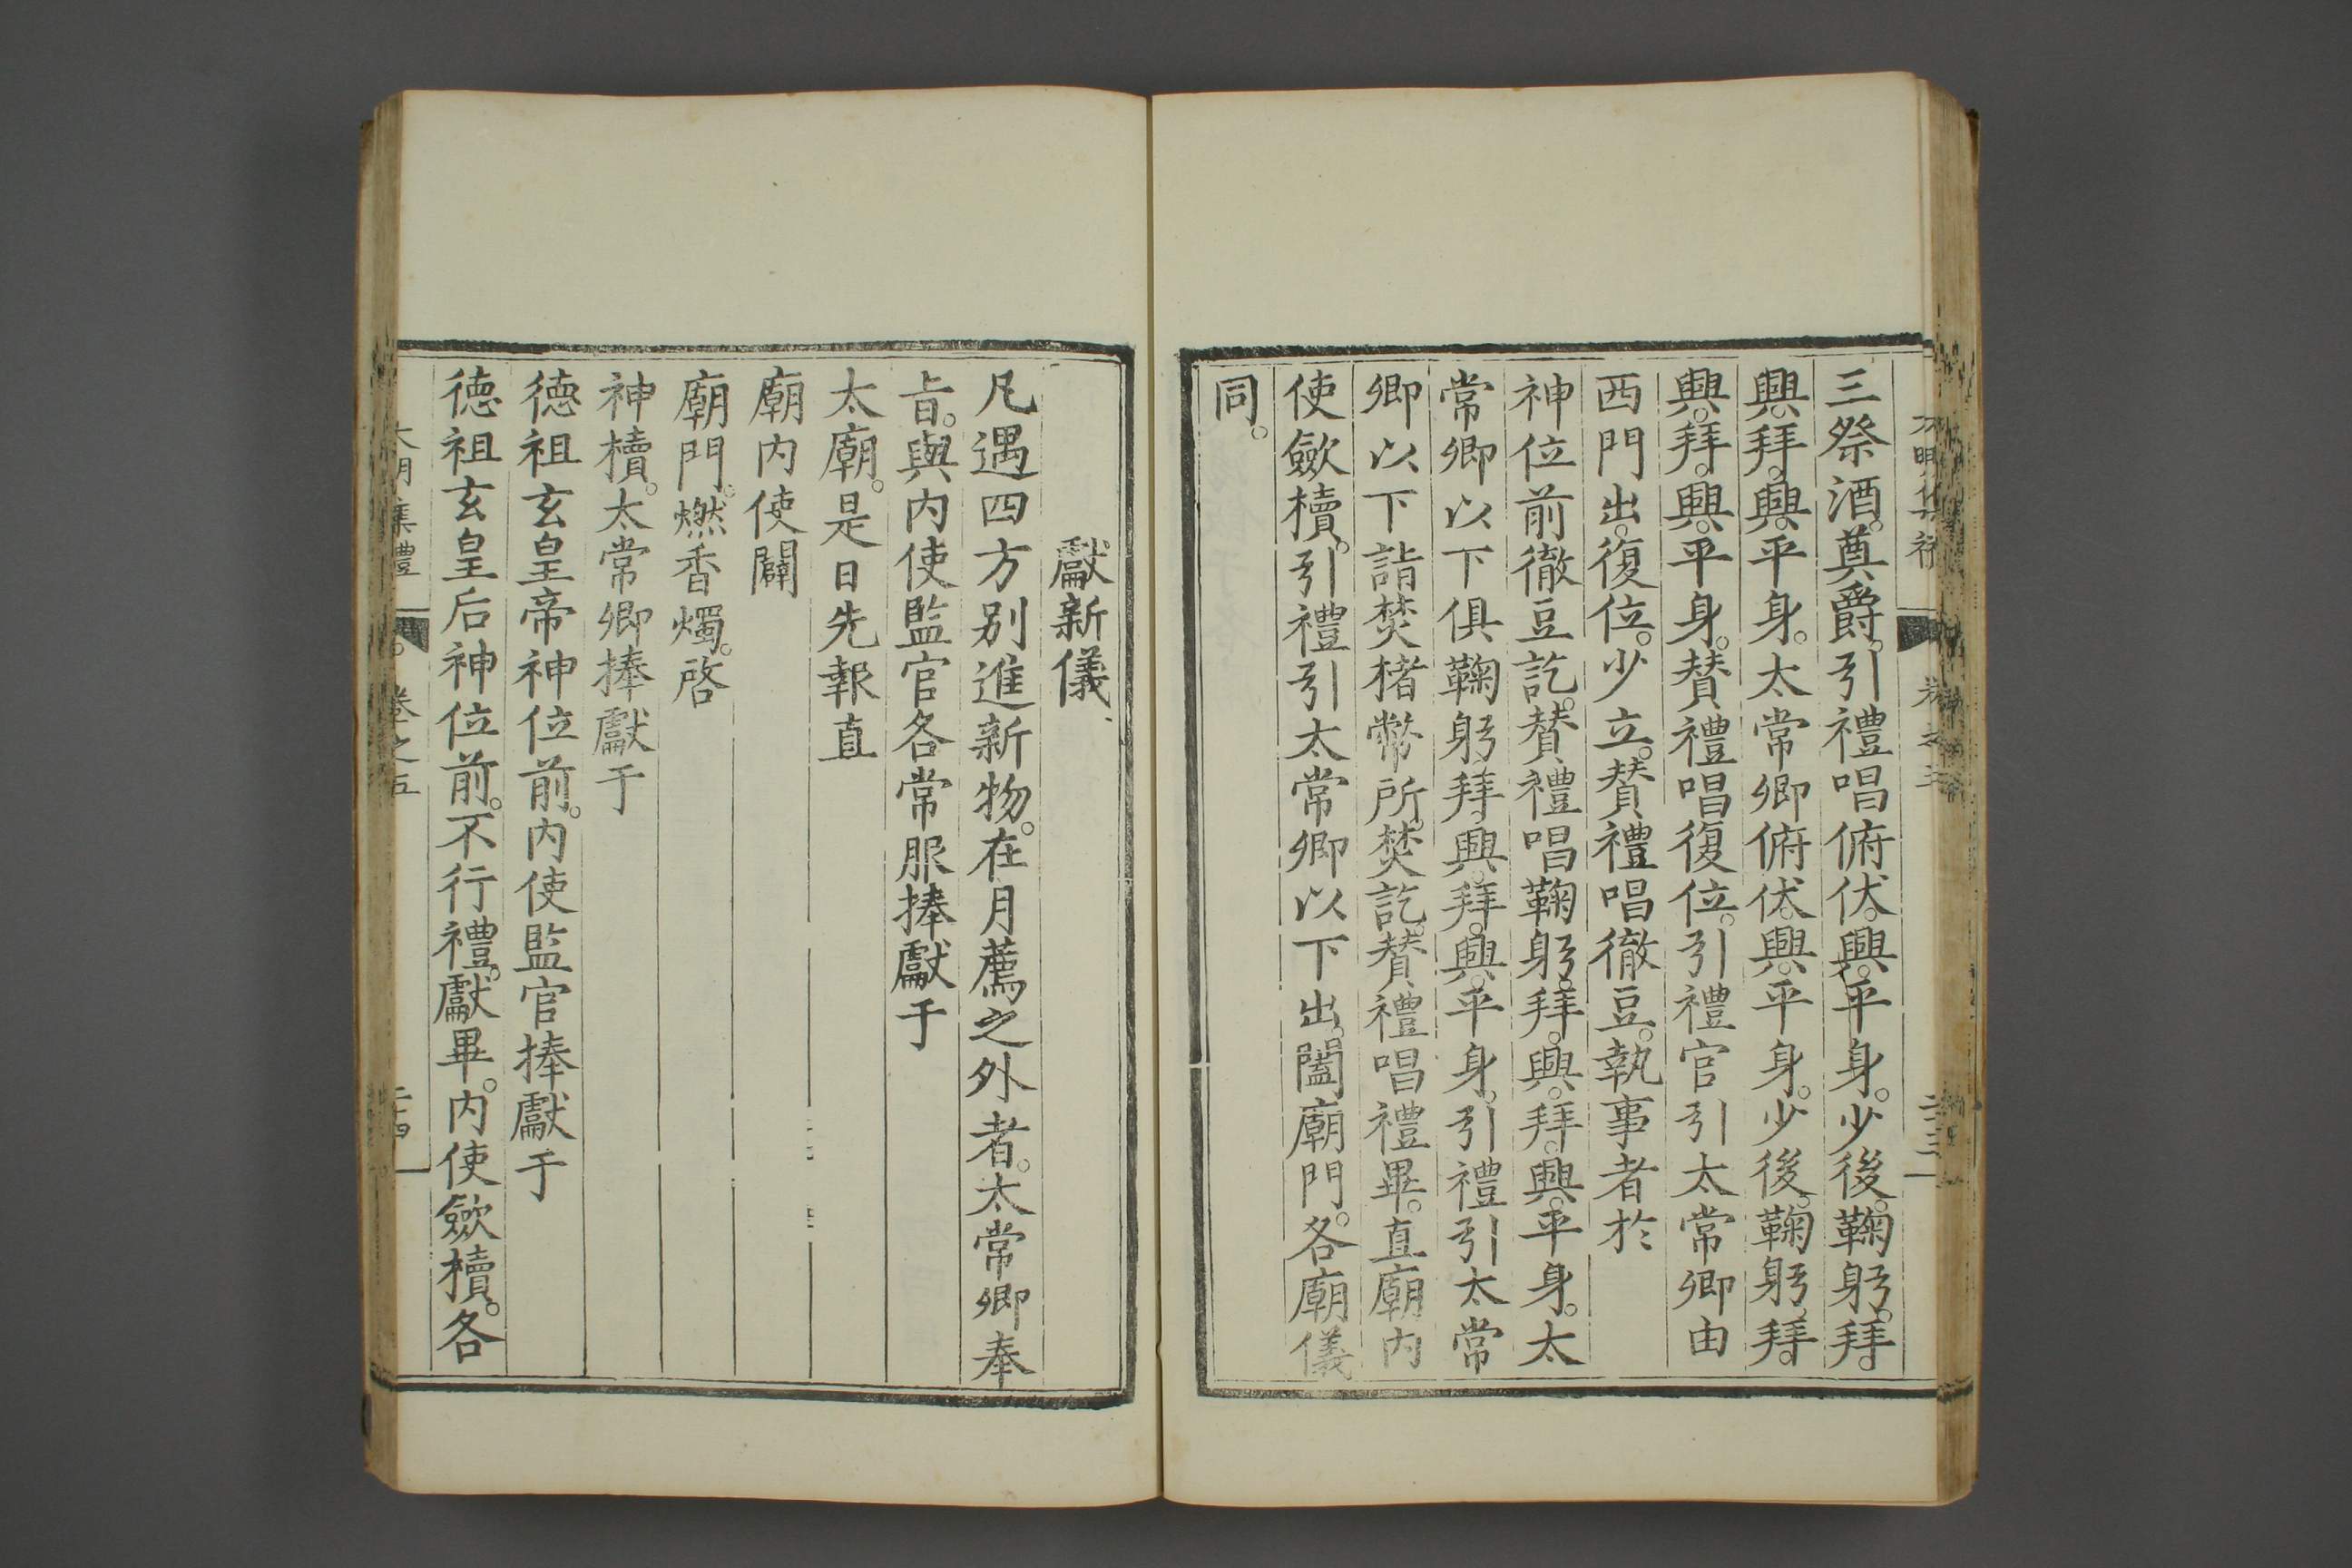 三祭酒。奠爵。引禮唱俯伏。興。平身。少後。鞠躬。拜。
興。拜。興。平身。太常卿俯伏。興。平身。少後。鞠躬。拜。
興。拜。興。平身。贊禮唱復位。引禮官引太常卿由
西門出。復位。少立。贊禮唱徹豆。執事者於
神位前徹豆訖。贊禮唱鞠躬。拜。興。拜。興。平身。太
常卿以下俱鞠躬。拜。興。拜。興。平身。引禮引太常
卿以下詣焚楮幣所。焚訖。贊禮唱禮畢。直廟內
使斂櫝。引禮引太常卿以下出。闔廟門。各廟儀
同。
獻新儀
凡遇四方别進新物。在月薦之外者。太常卿奉
㫖。與內使監官各常服捧獻于
太廟。是日先報直
廟內使闢
廟門。燃香燭。啓
神櫝。太常卿捧獻于
德祖玄皇帝神位前。內使監官捧獻于
德祖玄皇后神位前。不行禮。獻畢。內使斂櫝。各
大明集禮 卷之五 二十四